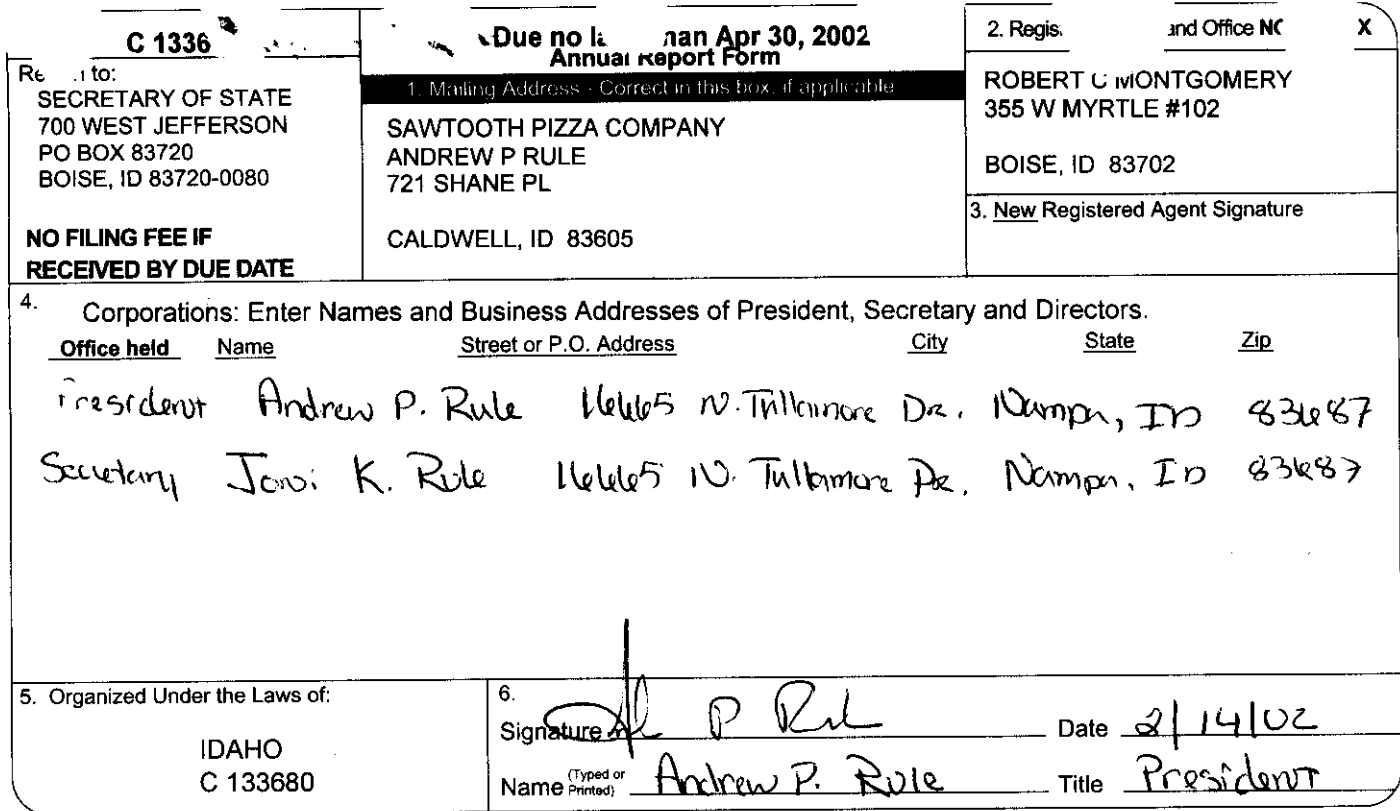 C 1336
Due no lan Apr 30, 2002
Annual Report Form
to:
SECRETARY OF STATE
700 WEST JEFFERSON
PO BOX 83720
BOISE, ID 83720-0080
NO FILING FEE IF
RECEIVED BY DUE DATE
1. Mailing Address - Correct in this box, if applicable
SAWTOOTH PIZZA COMPANY
ANDREW P RULE
721 SHANE PL
CALDWELL, ID 83605
2. Regis and Office X
ROBERT C MONTGOMERY
355 W MYRTLE #102
BOISE, ID 83702
3. New Registered Agent Signature
4. Corporations: Enter Names and Business Addresses of President, Secretary and Directors.
Office held Name Street or P.O. Address City State Zip
President Andrew P. Rule 16665 N. Tullamore Dr. Nampa, ID 83687
Secretary K. Rule 16665 N. Tullamore Dr. Nampa, ID 83687
5. Organized Under the Laws of:
IDAHO
C 133680
6.
Signature P Rul Date 2/14/02
Name (Typed or Printed) Andrew P. Rule Title President